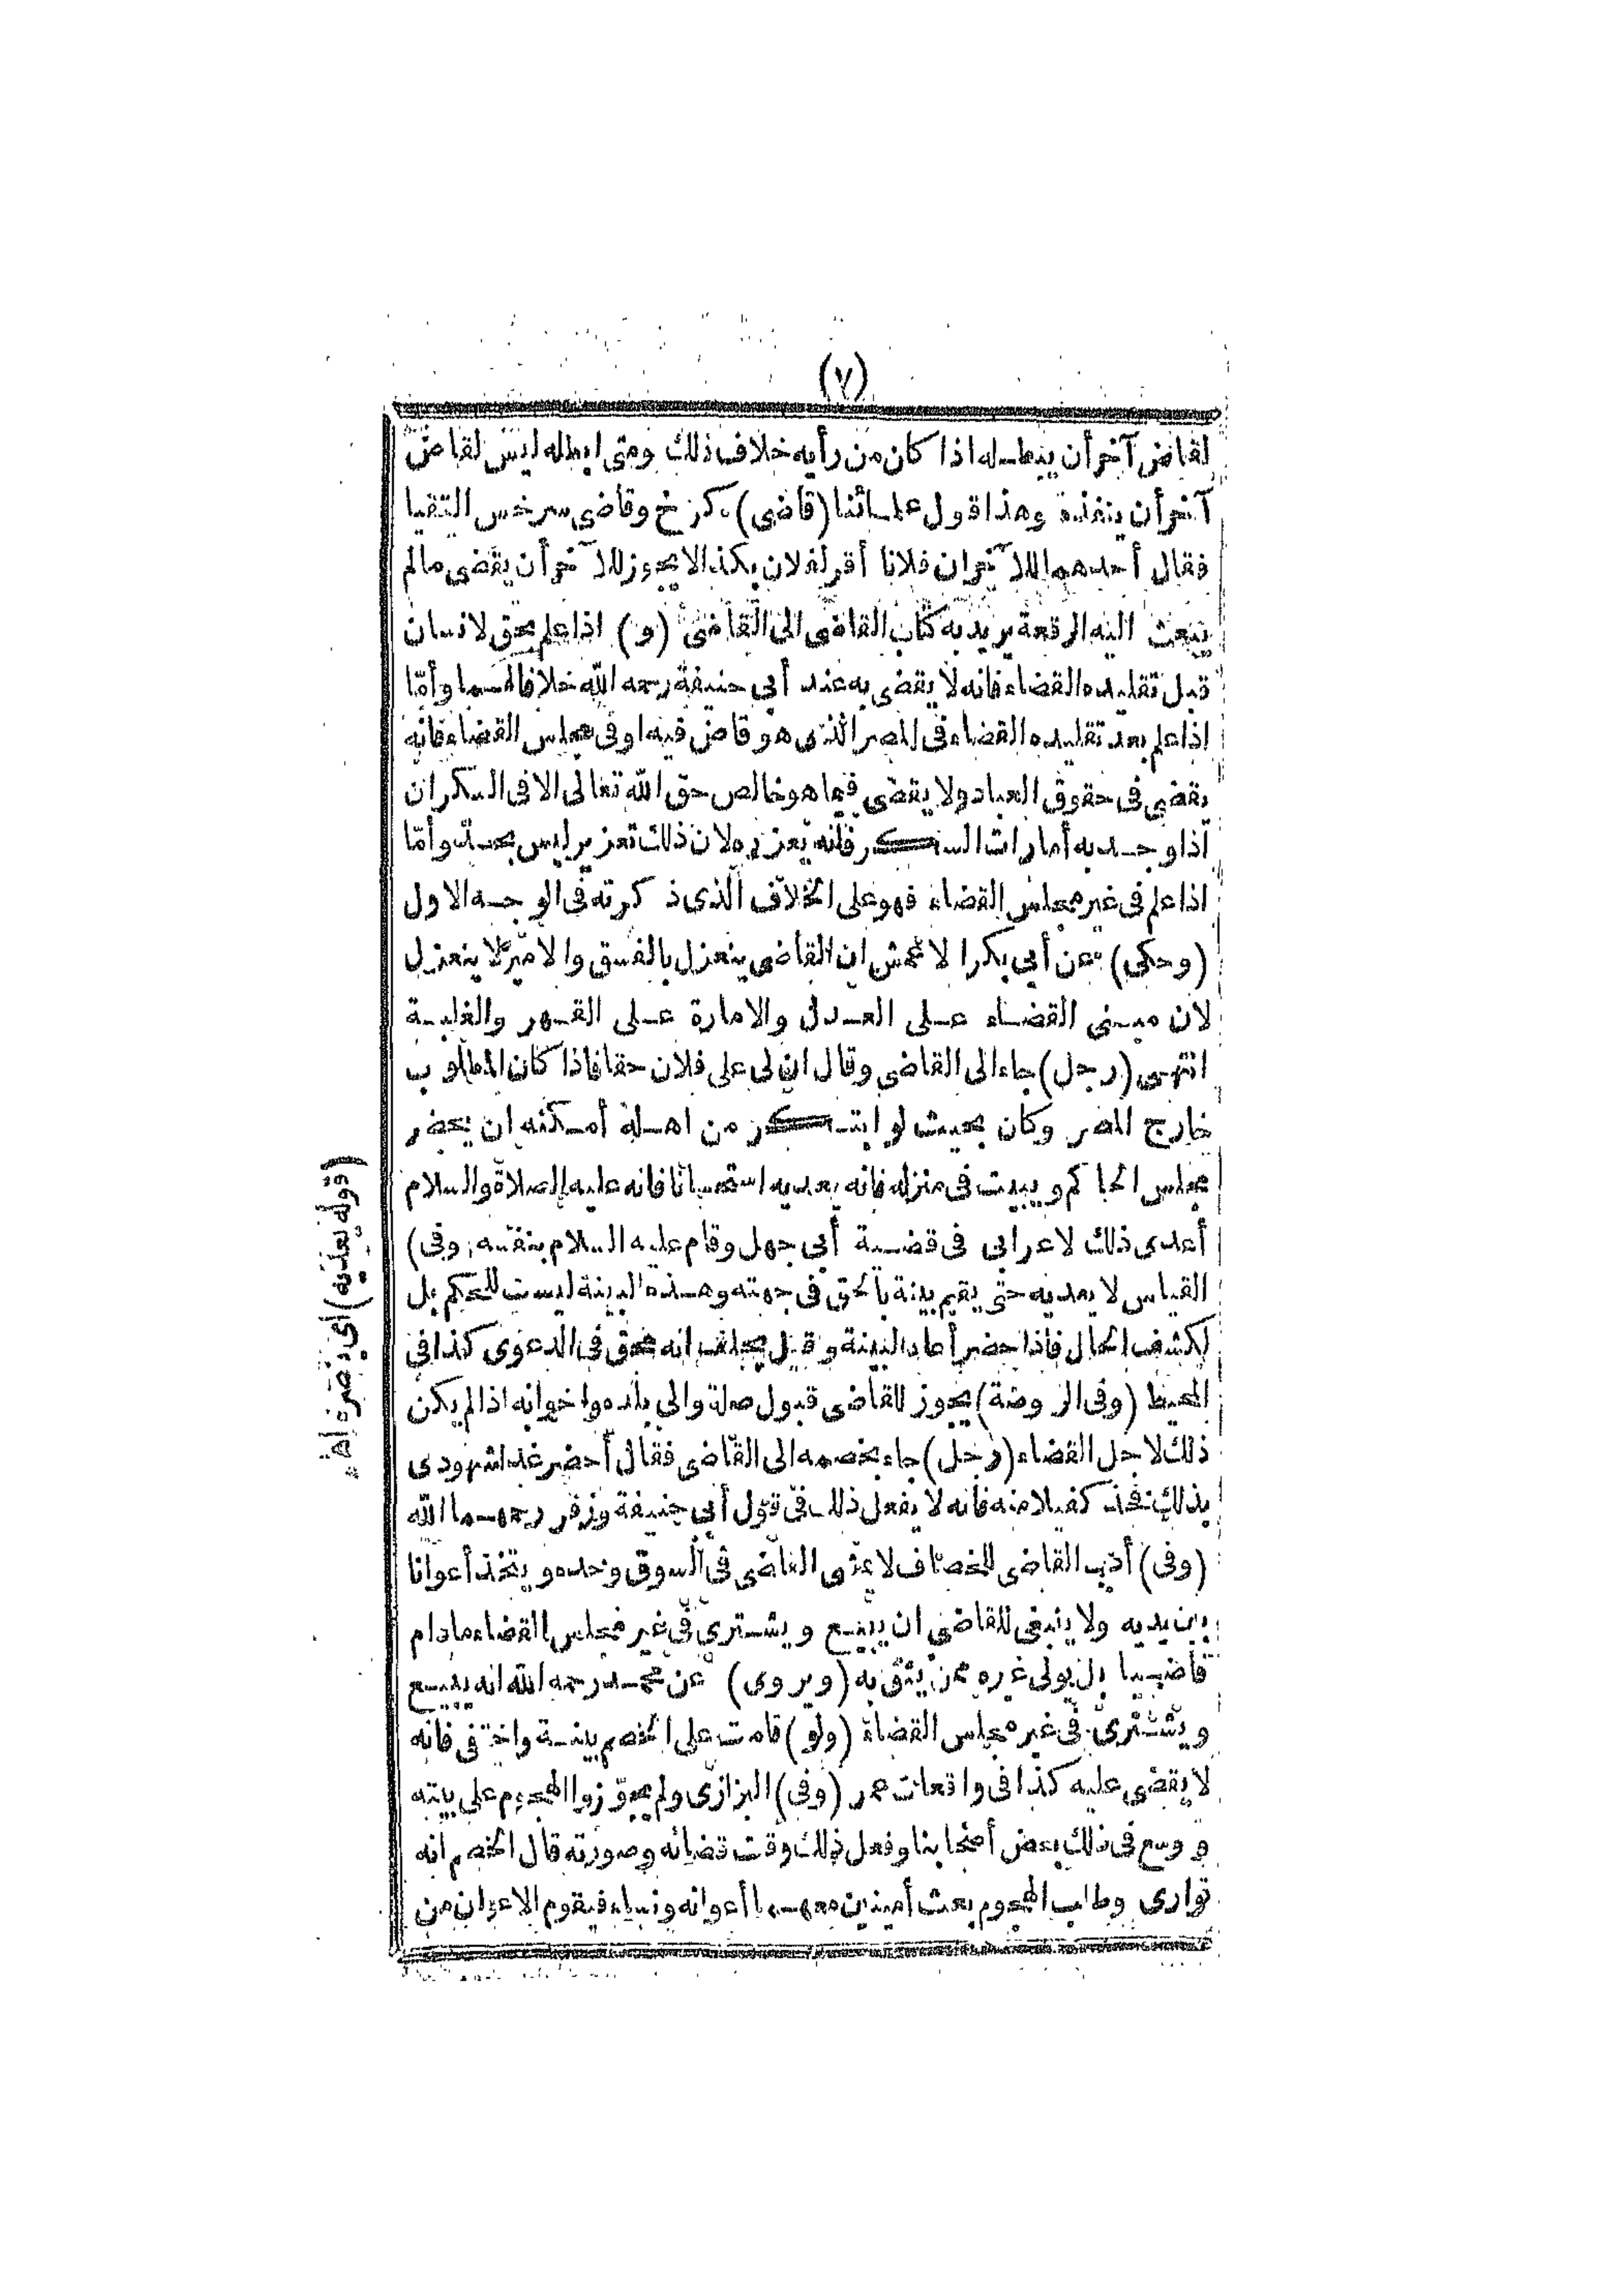 (٧)
لقاض آخر أن يبطله اذا كان من رأيه خلاف ذلك ومتى ابطله ليس لقاض
آخر أن ينفذه وهذا قول علمائنا (قاضى) كرخ وقاضى سرخس التقيا
فقال أحدهما للآخر ان فلانا أقر لفلان بكذا لا يجوز للآخر أن يقضى ما لم
يبعث اليه الرقعة يريد به كتاب القاضى الى القاضى (و) اذا علم بحق لانسان
قبل تقليده القضاء فانه لا يقضى به عند أبى حنيفة رحمه الله خلافا لهما وأما
اذا علم بعد تقليده القضاء فى المصر الذى هو قاض فيه او فى مجلس القضاء فانه
يقضى فى حقوق العباد ولا يقضى فيما هو خالص حق الله تعالى الا فى السكران
اذا وجد به أمارات السكر فانه يعزره لان ذلك تعزير ليس بحد وأما
اذا علم فى غير مجلس القضاء فهو على الخلاف الذى ذكرته فى الوجه الاول
(وحكى) عن أبى بكر الاعمش ان القاضى ينعزل بالفسق والامير لا ينعزل
لان مبنى القضاء على العدل والامارة على القهر والغلبة
انتهى (رجل) جاء الى القاضى وقال ان لى على فلان حقا فاذا كان المطلوب
خارج المصر وكان بحيث لو ابتكر من اهله أمكنه ان يحضر
مجلس الحاكم ويبيت فى منزله فانه يعديه استحسانا فانه عليه الصلاة والسلام
أعدى ذلك لاعرابى فى قضية أبى جهل وقام عليه السلام بنفسه (وفى)
القياس لا يعديه حتى يقيم بينة بالحق فى جهته وهذه البينة ليست للحكم بل
لكشف الحال فاذا حضر أعاد البينة وقيل يحلف انه محق فى الدعوى كذا فى
المحيط (وفى الروضة) يجوز للقاضى قبول صلة والى بلده واخوانه اذا لم يكن
ذلك لاجل القضاء (رجل) جاء بخصمه الى القاضى فقال أحضر غدا شهودى
بذلك فخذ كفيلا منه فانه لا يفعل ذلك فى قول أبى حنيفة وزفر رحمهما الله
(وفى) أدب القاضى للخصاف لا يمشى القاضى فى السوق وحده ويتخذ أعوانا
بين يديه ولا ينبغى للقاضى ان يبيع ويشترى فى غير مجلس القضاء مادام
قاضيا بل يولى غيره ممن يثق به (ويروى) عن محمد رحمه الله انه يبيع
ويشترى فى غير مجلس القضاء (ولو) قامت على الخصم بينة واختفى فانه
لا يقضى عليه كذا فى واقعات عمر (وفى) البزازى ولم يجوزوا الهجوم على بيته
ووسع فى ذلك بعض أصحابنا وفعل ذلك وقت قضائه وصورته قال الخصم انه
توارى وطلب الهجوم بعث أمينين معهما أعوانه ونساء فيقوم الاعوان من
(قوله يعديه) أى ينصره اه